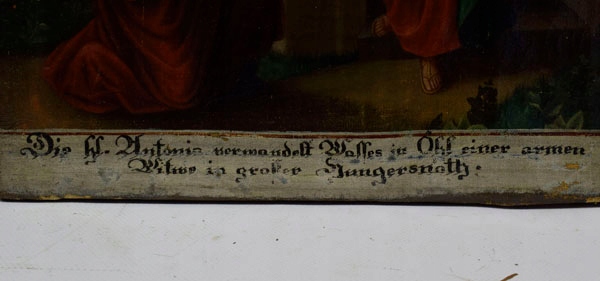 Die hl. Antonia verwandelt Wasses zu Öhl einer armen
Witwe in großer Hungersnoth: